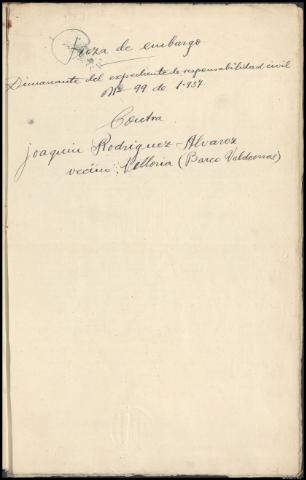 Pieza de embargo
Dimanante del expediente de responsabilidad civil
Nº 99 de 1.937.
Contra
Joaquín Rodríguez Alvarez
vecino, Velloria (Barco Valdeorras)